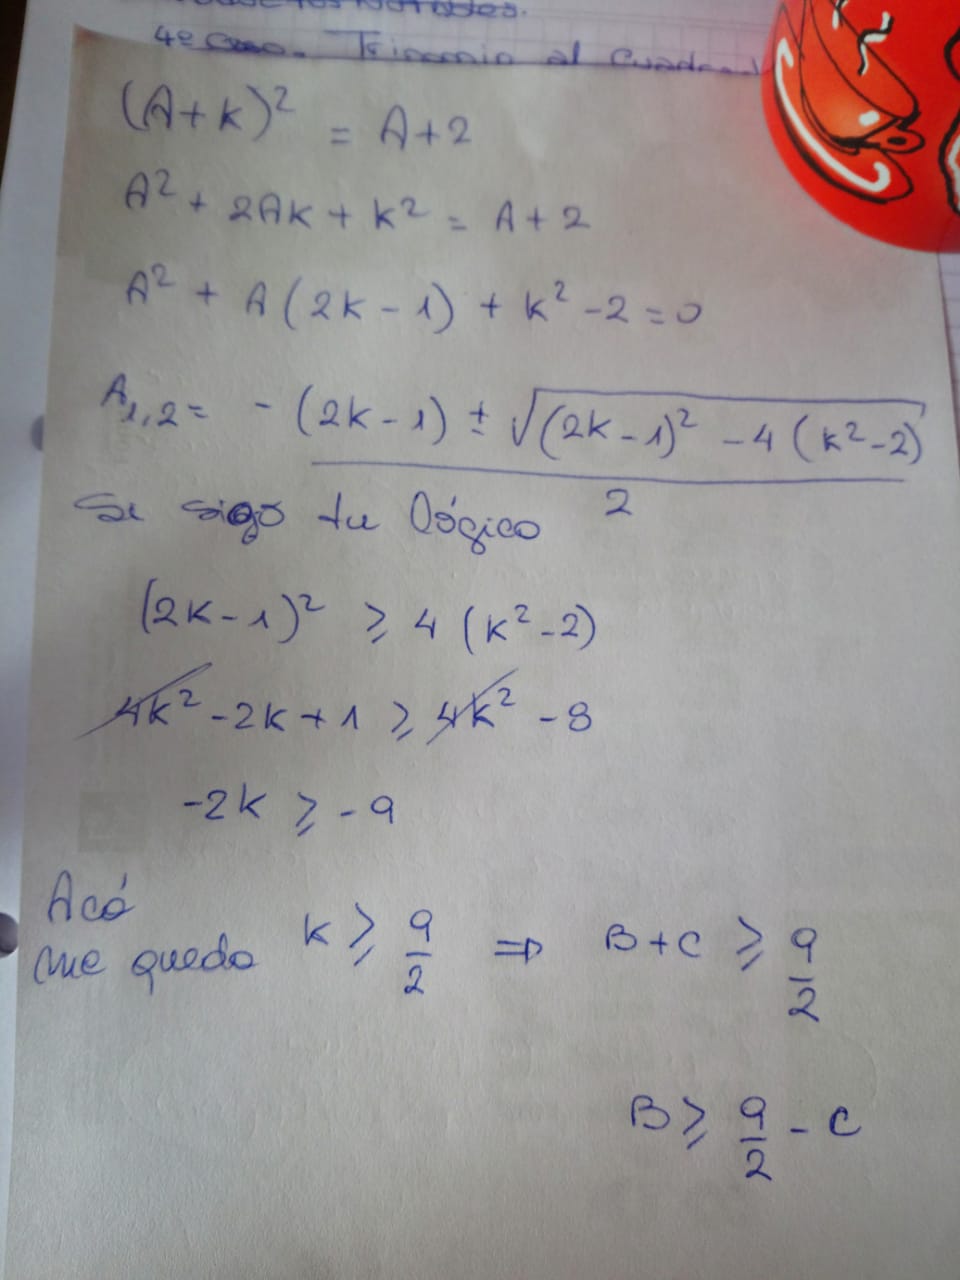 4º Caso. Trinomio al Cuadrado
(A+k)² = A+2
A² + 2AK + K² = A+2
A² + A(2K-1) + K² -2 = 0
A₁,₂ = -(2K-1) ± √((2K-1)² -4(K²-2)) / 2
Si sigo tu lógica
(2K-1)² ≥ 4(K²-2)
4K² -2K+1 ≥ 4K² -8
-2K ≥ -9
Acá
me queda K ≥ 9/2 ⇒ B+C ≥ 9/2
B ≥ 9/2 - C